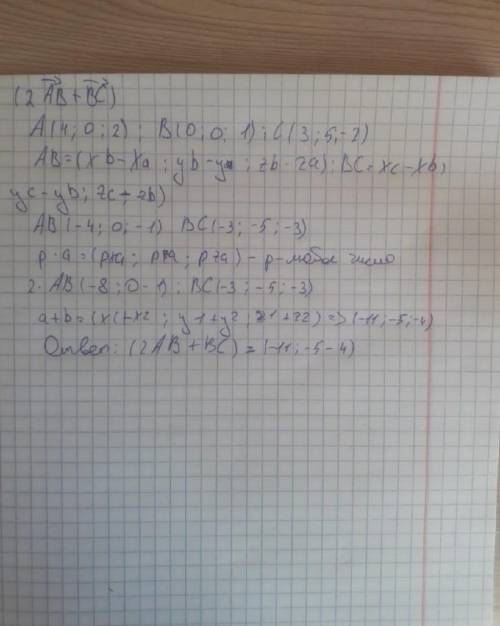 (2 AB + BC)
A(4; 0; 2); B(0; 0; 1); C(3; 5; -2)
AB = (xb - xa; yb - ya; zb - za); BC = xc - xb;
yc - yb; zc + zb)
AB(-4; 0; -1) BC(-3; -5; -3)
p · a = (pxa; pya; pza) - p - любое число
2 · AB(-8; 0 - 1); BC(-3; -5; -3)
a + b = (x1 + x2; y1 + y2; z1 + z2) => (-11; -5; -4)
Ответ: (2AB + BC) = (-11; -5 - 4)